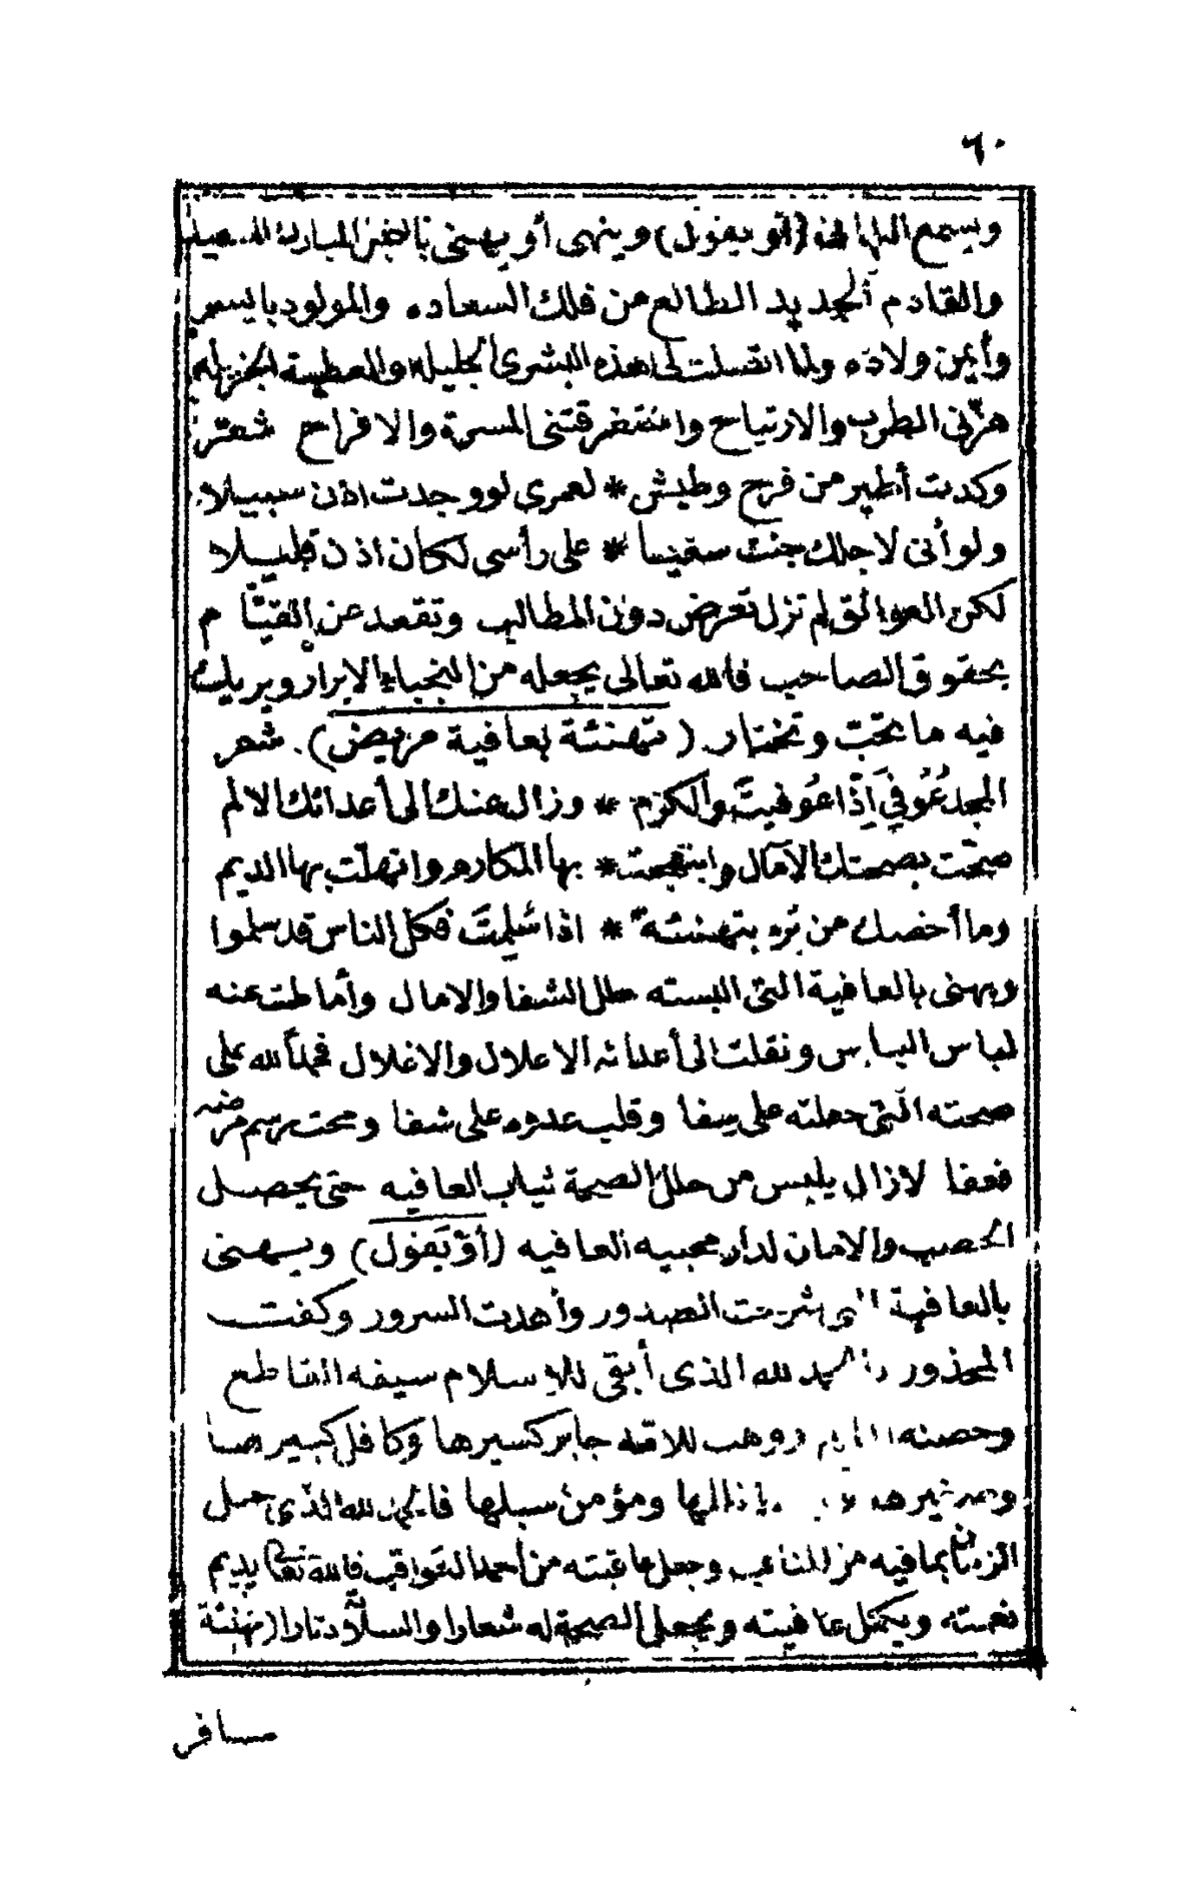 ٦٠
ويسمع (أو يقول) وينهى أو يهنى المبارك
والقادم الجديد الطالع من فلك السعاده والمولود بايسر
وأيمن ولاده ولما اتصلت لى هذه البشرى الجليله والعطية الجزيله
هزّنى الطرب والارتياح واستغرقتنى المسرة والافراح شعر
وكدت أطير من فرح وطيش * لعمرى لو وجدت اذن سبيلا
ولو أنى لاجلك جئت سعيا * على رأسى لكان اذن قليلا
لكن العوائق لم تزل تعرض دون المطالب وتقعد عن القيام
بحقوق الصاحب فالله تعالى يجعله من النجباء الابرار ويريك
فيه ما تحبّ وتختار (تهنئة بعافية مريض) شعر
المجد عُوفِيَ إِذْ عُوفيتَ والكرم * وزال عنك الى أعدائك الالم
صحّت بصحتك الآمال وابتهجت * بها المكارم وانهلّت بها الديم
وما أخصك من برء بتهنئة * اذا سَلِمتَ فكل الناس قد سلموا
ويهنى بالعافية التى البسته حلل الشفا والامال وأماطت عنه
لباس الباس ونقلت الى أعدائه الاعلال والاغلال فحمداً لله على
صحته التى حملته على شفا وقلب عدوه على شفا ومحت رسم مرضه
فعفا لازال يلبس من حلل الصحة ثياب العافيه حتى يحصل
الخصب والامان لدار محبيه العافيه (أوْ يَقول) ويهنى
بالعافية التى شرحت الصدور وأهدت السرور وكفت
المحذور والحمد لله الذى أبقى للاسلام سيفه القاطع
وحصنه ووهب للامّة جابر كسيرها وكافل كبير
ومؤمن سبلها فالحمد لله الذى
الزمان بما فيه من المتاعب وجعل عاقبته من أحمد العواقب فالله تعالى يديم
نعمته ويكمّل عافيته ويجعل الصحة له شعارا والسلامة دثارا (تهنئة
مسافر